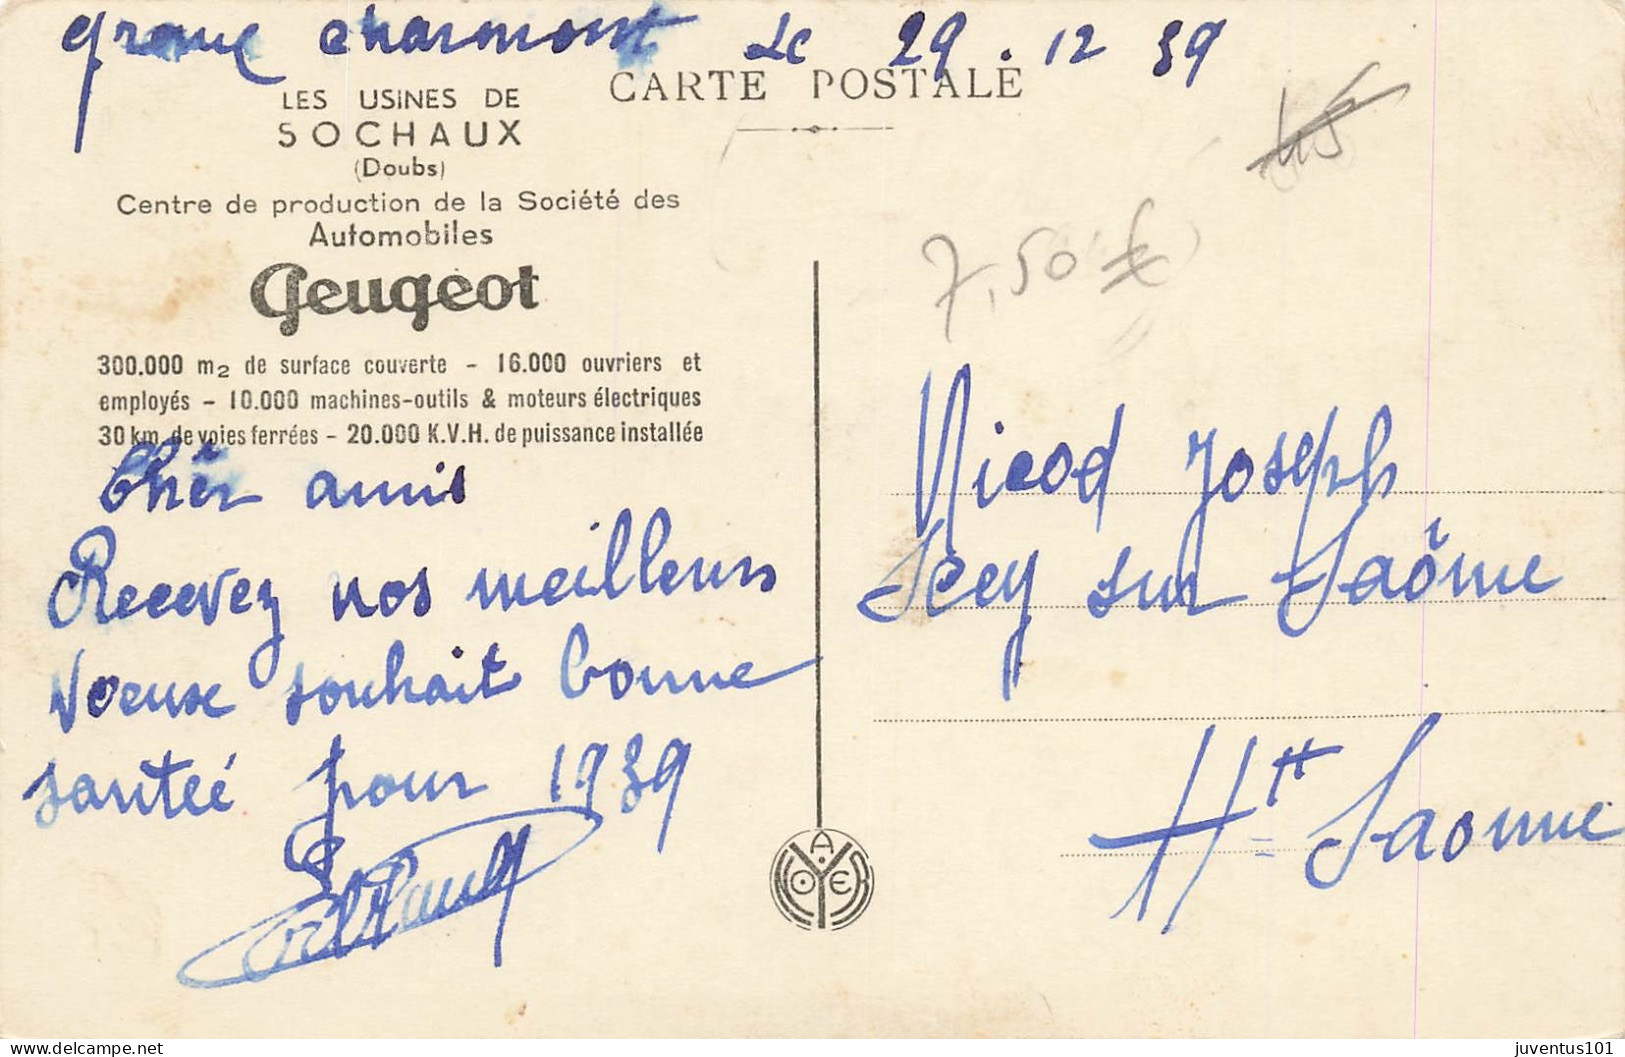 Grand charmont Le 29.12 39
CARTE POSTALE
LES USINES DE
SOCHAUX
(Doubs)
Centre de production de la Société des
Automobiles
Peugeot
300.000 m2 de surface couverte - 16.000 ouvriers et
employés - 10.000 machines-outils & moteurs électriques
30 km. de voies ferrées - 20.000 K.V.H. de puissance installée
Chèr amis
Recevez nos meilleurs
voeux souhait bonne
santéé pour 1939
45
7,50 €
Nicod Joseph
Scey sur Saône
Hte Saonne
delcampe.net
juventus101